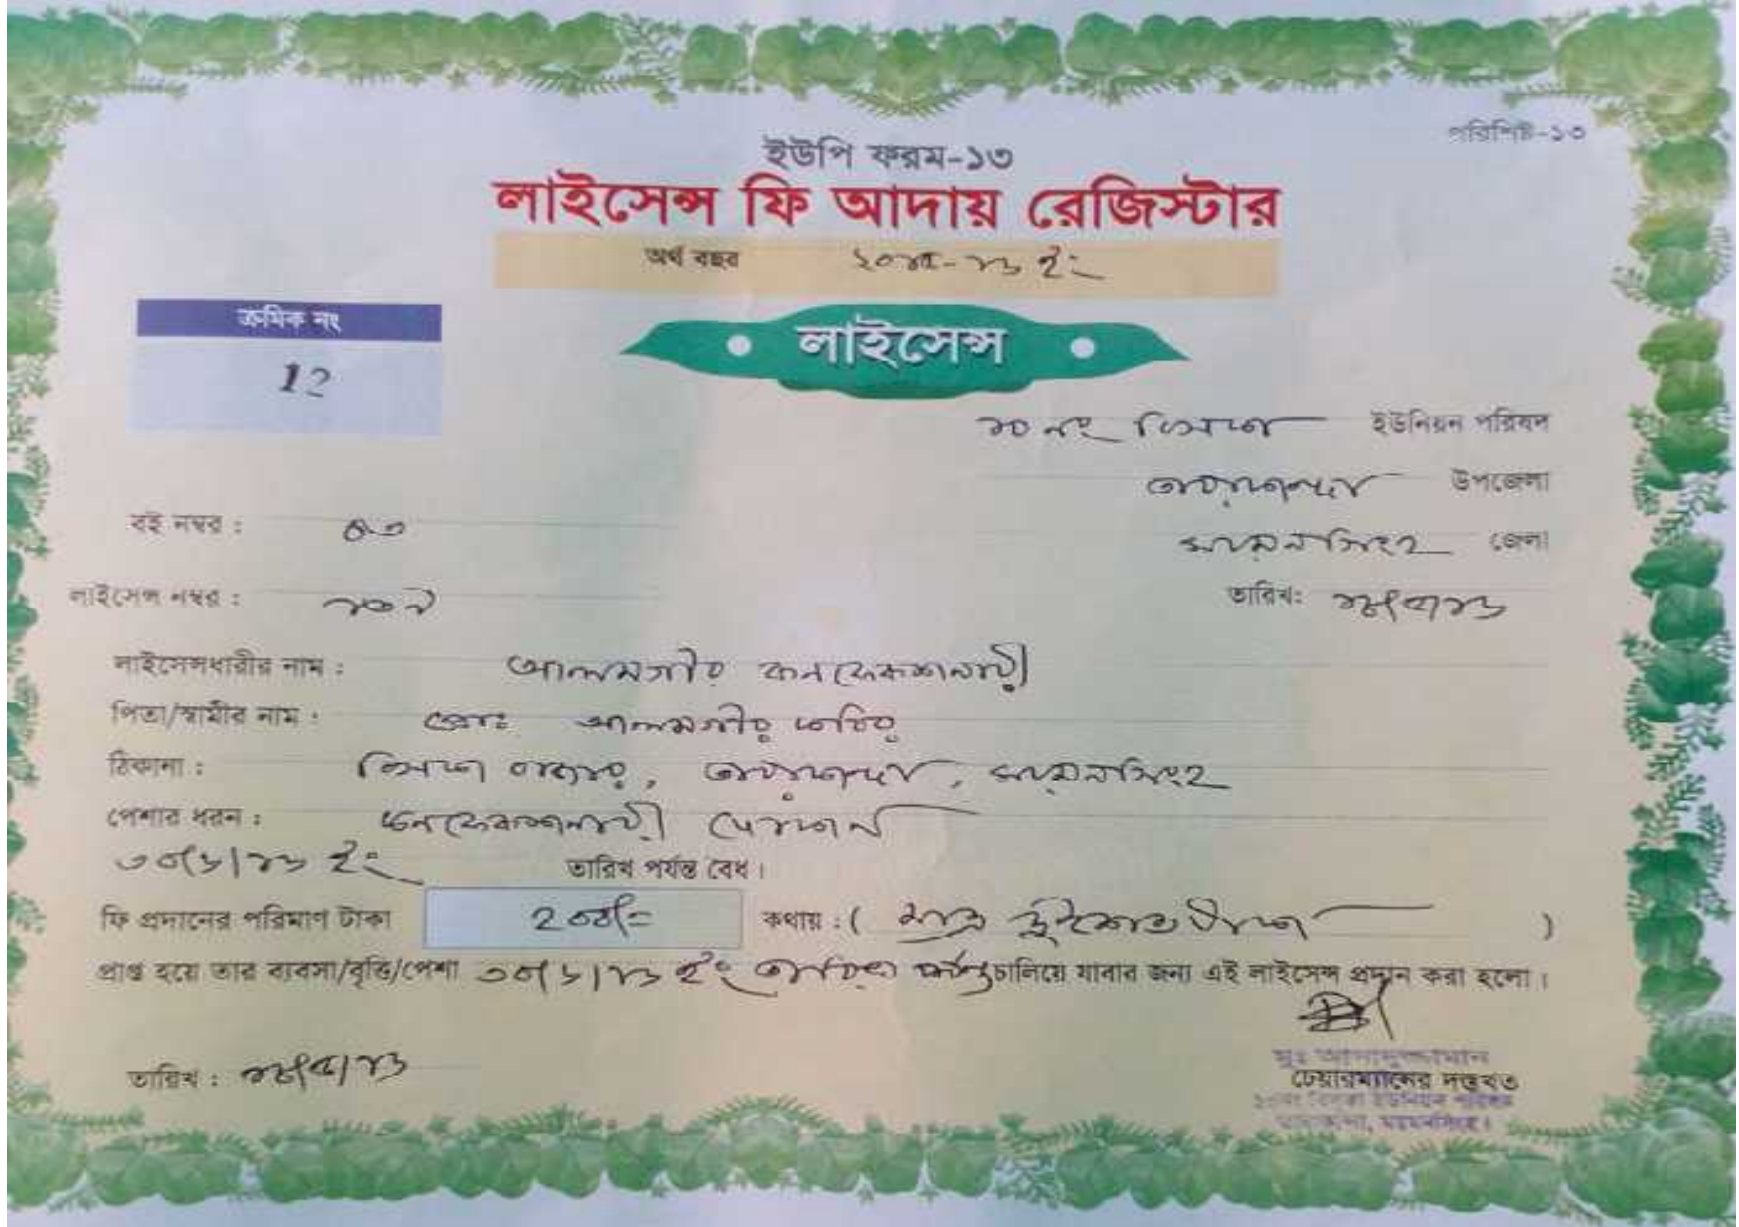 পরিশিষ্ট-১৩
ইউপি ফরম-১৩
লাইসেন্স ফি আদায় রেজিস্টার
অর্থ বছর ২০১৫-১৬ ইং
ক্রমিক নং
12
লাইসেন্স
১০ নং বিসকা ইউনিয়ন পরিষদ
তারাকান্দা উপজেলা
ময়মনসিংহ জেলা
বই নম্বর :
লাইসেন্স নম্বর :
তারিখ:
লাইসেন্সধারীর নাম : আলমগীর কনফেকশনারী
পিতা/স্বামীর নাম : প্রোঃ আলমগীর কবির
ঠিকানা : বিসকা বাজার, তারাকান্দা, ময়মনসিংহ
পেশার ধরন : কনফেকশনারী দোকান
৩০/৬/১৬ ইং তারিখ পর্যন্ত বৈধ।
ফি প্রদানের পরিমাণ টাকা ২০০/= কথায় : ( মাত্র দুইশত টাকা )
প্রাপ্ত হয়ে তার ব্যবসা/বৃত্তি/পেশা ৩০/৬/১৬ ইং তারিখ পর্যন্ত চালিয়ে যাবার জন্য এই লাইসেন্স প্রদান করা হলো।
মুঃ আসাদুজ্জামান
চেয়ারম্যানের দস্তখত
১০নং বিসকা ইউনিয়ন পরিষদ
তারাকান্দা, ময়মনসিংহ।
তারিখ :